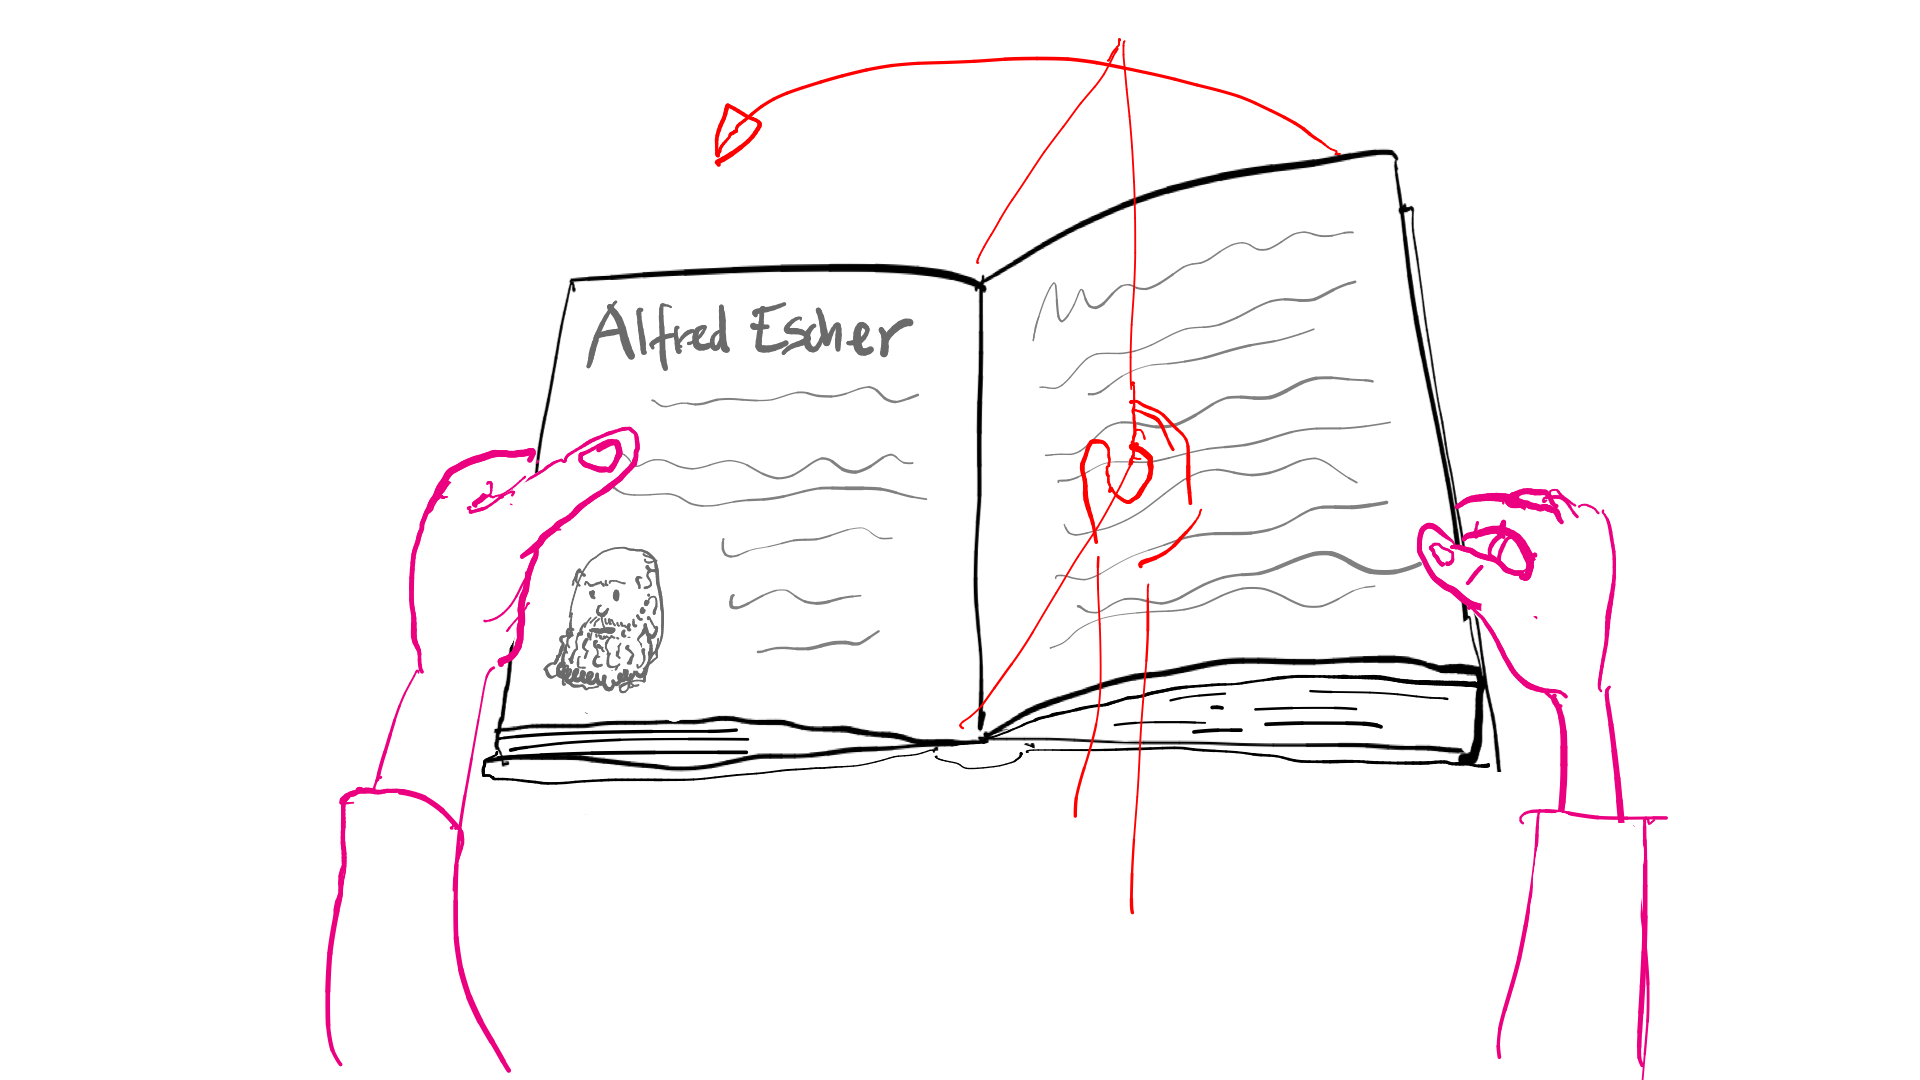 Alfred Escher